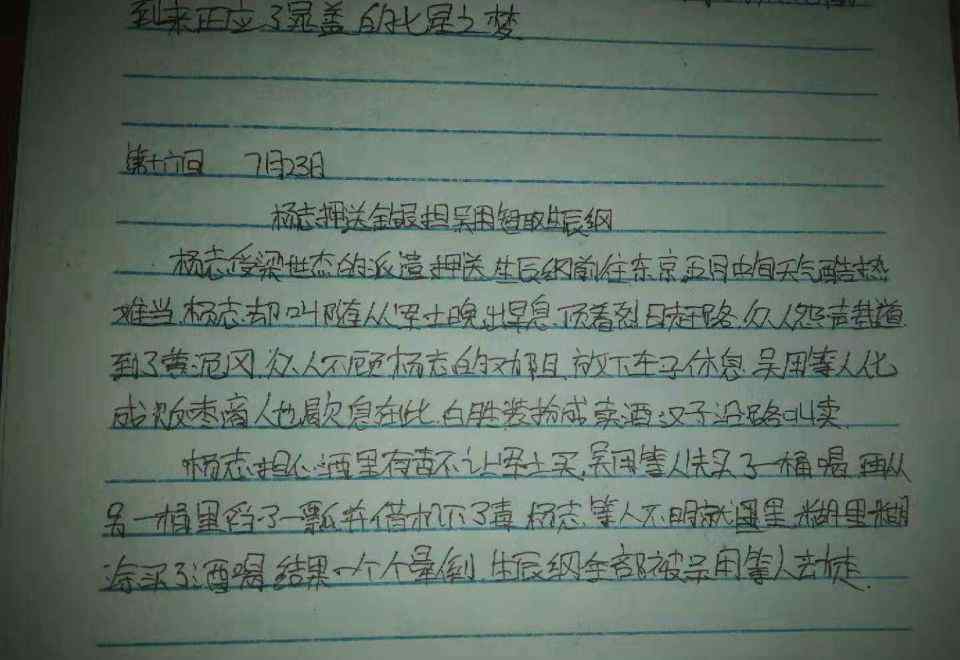 到来正应了晁盖的七星之梦
第十六回 7月23日
杨志押送金银担 吴用智取生辰纲
杨志受梁世杰的派遣押送生辰纲前往东京五月中旬天气酷热
难当.杨志却叫随从军士晚出早息.顶着烈日赶路.众人怨声载道
到了黄泥冈.众人不顾杨志的劝阻.放下车子休息.吴用等人化
成贩枣商人也歇息在此.白胜装扮成卖酒汉子沿路叫卖.
杨志担心酒里有药不让军士买.吴用等人先买了一桶喝.再从
另一桶里舀了一瓢并借机下了毒.杨志等人不明就里.糊里糊
涂买了酒喝.结果一个个晕倒.生辰纲全部被吴用等人劫走.